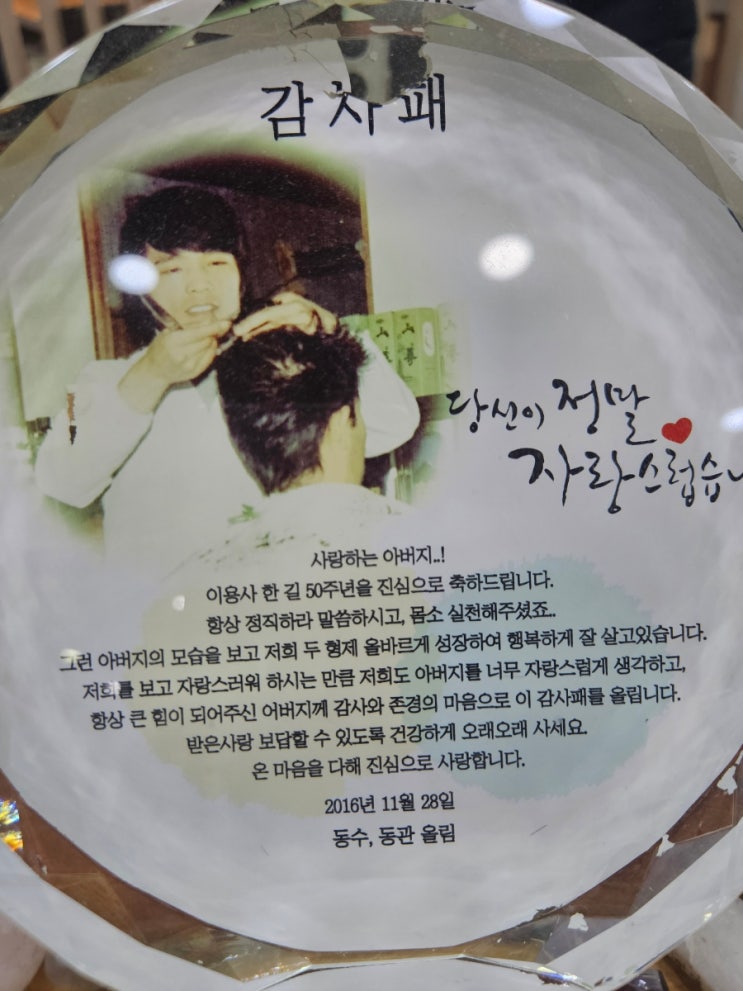 감사패
당신이 정말
자랑스럽습니
사랑하는 아버지..!
이용사 한 길 50주년을 진심으로 축하드립니다.
항상 정직하라 말씀하시고, 몸소 실천해주셨죠..
그런 아버지의 모습을 보고 저희 두 형제 올바르게 성장하여 행복하게 잘 살고있습니다.
저희를 보고 자랑스러워 하시는 만큼 저희도 아버지를 너무 자랑스럽게 생각하고,
항상 큰 힘이 되어주신 어버지께 감사와 존경의 마음으로 이 감사패를 올립니다.
받은사랑 보답할 수 있도록 건강하게 오래오래 사세요.
온 마음을 다해 진심으로 사랑합니다.
2016년 11월 28일
동수, 동관 올림